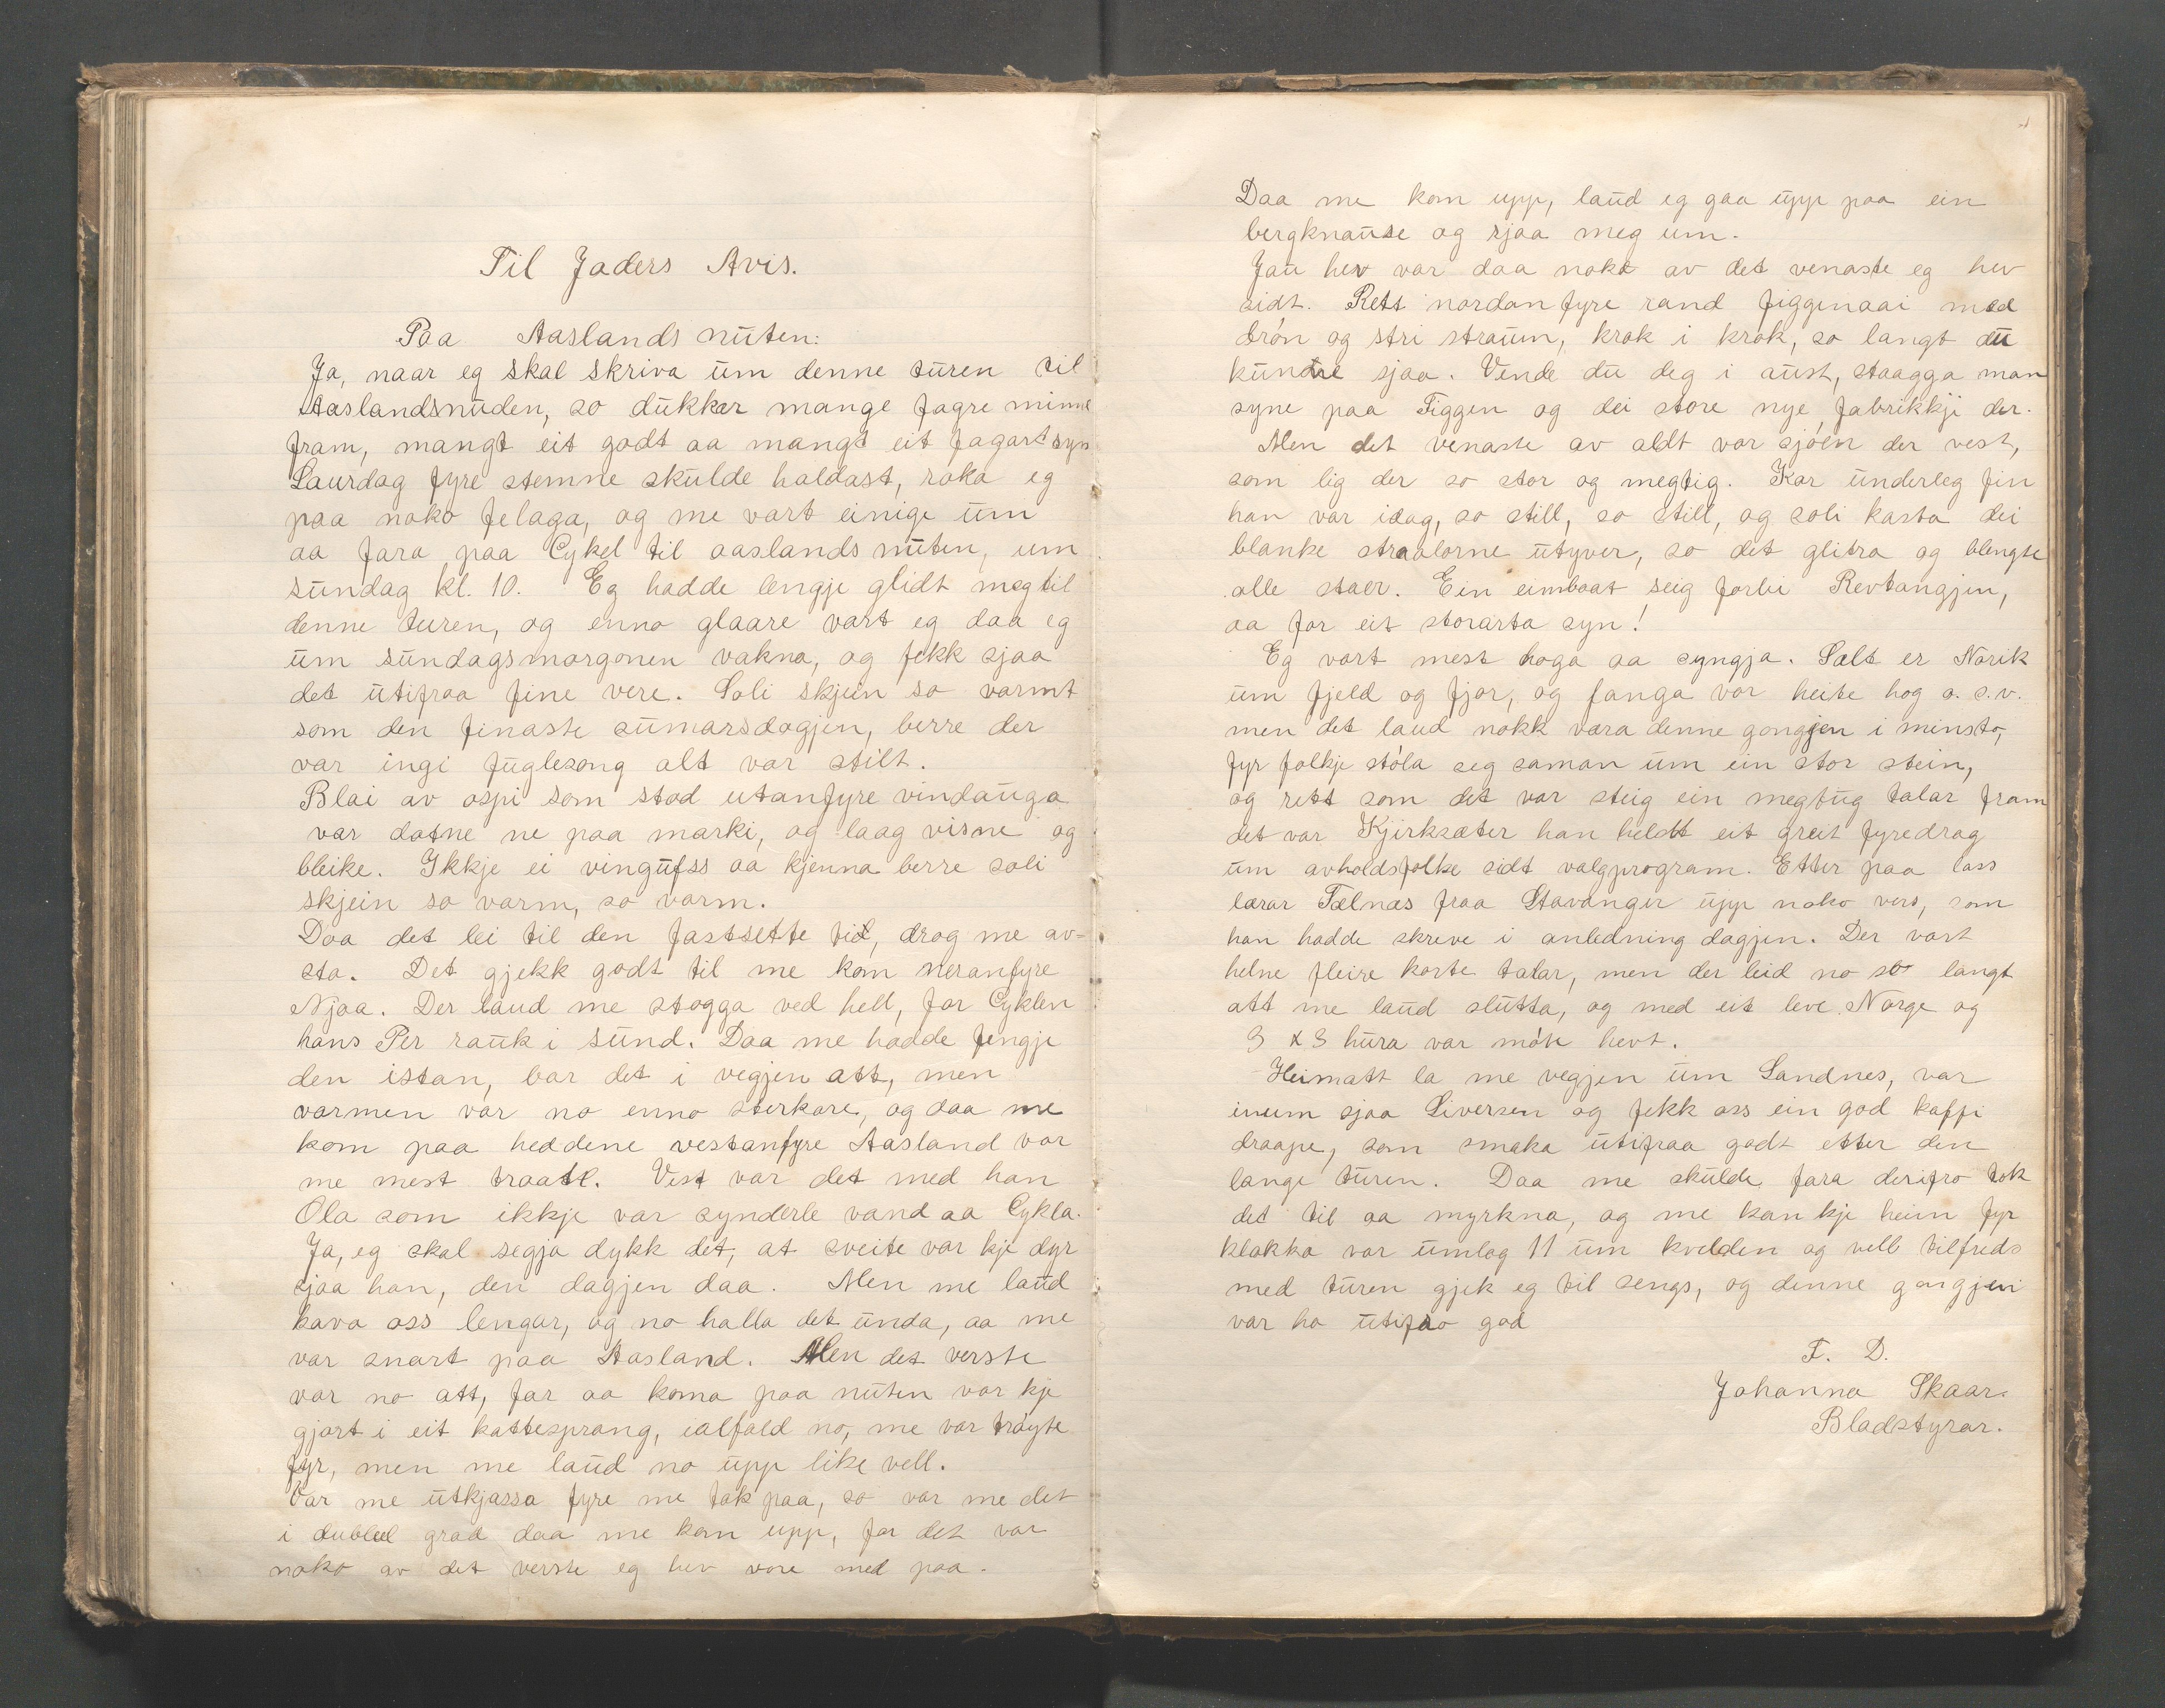 Til Jaders Avis.
Paa Aaslands nuten:
Ja, naar eg skal skriva um denne turen til
Aaslandsnuden, so dukkar mange fagre minne
fram, mangt eit godt aa mangt eit fagart syn
Laurdag fyre stemne skulde haldast, raka eg
paa noko felaga, og me vart einige um
aa fara paa Cykel til aaslands nuten, um
sundag kl. 10. Eg hadde lengje glidt meg til
denne turen, og enno glaare vart eg daa eg
um sundagsmorgonen vakna, og fekk sjaa
det utifraa fine vere. Soli skjein so varmt
som den finaste sumarsdagjen, berre der
var ingi fuglesong alt var stilt.
Blai av ospi som stod utanfyre vindauga
var datne ne paa marki, og laag visne og
bleike. Ikkje ei vingufss aa kjenna berre soli
skjein so varm, so varm.
Daa det lei til den fastsette tid, drog me av-
sta. Det gjekk godt til me kom neranfyre
Njaa. Der laud me stogga ved hell, for Cyklen
hans Per rauk i sund. Daa me hadde fengje
den istan, bar det i vegjen att, men
varmen var no enno sterkare, og daa me
kom paa heddene vestanfyre Aasland var
me mest traate. Vest var det med han
Ola som ikkje var synderle vand aa Cykla.
Ja, eg skal segja dykk det, at sveite var kje dyr
sjaa han, den dagjen daa. Men me laud
kava oss lengar, og no halla det unda, aa me
var snart paa Aasland. Men det verste
var no att, far aa koma paa nuten var kje
gjort i eit kattesprang, ialfald no, me var trøyte
fyr, men me laud no upp like vell.
Var me utkjassa fyre me tok paa, so var me det
i dubbel grad daa me kom upp, for det var
noko av det verste eg hev vore med paa.
Daa me kom upp, laud eg gaa upp paa ein
bergknause og sjaa meg um.
Jau hev var daa noko av det venaste eg hev
sidt. Rett nordanfyre rand Figgenaai med
drón og stri straum, krok i krok, so langt du
kundre sjaa. Vende du deg i aust, staagga man
syne paa Figgen og dei store nye fabrikkji der.
Men det venaste av aldt var sjóen der vest,
som lig der so stor og megtig. Kor underleg fin
han var idag, so still, so still, og soli kasta dei
blanke straalorne utyver, so det glitra og blengte
alle staer. Ein eimboat seig forbi Revtangjen,
aa for eit storarta syn!
Eg vart mest hoga aa syngja. Sælt er Norik
um fjeld og fjor, og fanga vor heite hog o. s. v.
men det laud nokk vara denne gongjen i minsto,
fyr folkje stóla seg saman um ein stor stein,
og rett som det var steig ein megtug talar fram
det var Kjirksæter han heldt eit greit fyredrag
um avholdsfolke sidt valgprogram. Etter paa lass
lærar Tælnæs fraa Stavanger upp noko vers, som
han hadde skreve i anledning dagjen. Der vart
helne fleire korte talar, men der leid no so langt
att me laud slutta, og med eit leve Norge og
3 x 3 hura var móte hevt.
Heimatt la me vegjen um Sandnes, var
inum sjaa Siversen og fekk oss ein god kaffi
draape, som smaka utifraa godt etter den
lange turen. Daa me skulde fara derifro tok
det til aa myrkna, og me kan kje heim fyr
klokka var umlag 11 um kvelden og vell tilfreds
med turen gjek eg til sengs, og denne gongjen
var ho utifro god
F. D.
Johanna Skaar.
Bladstyrar.